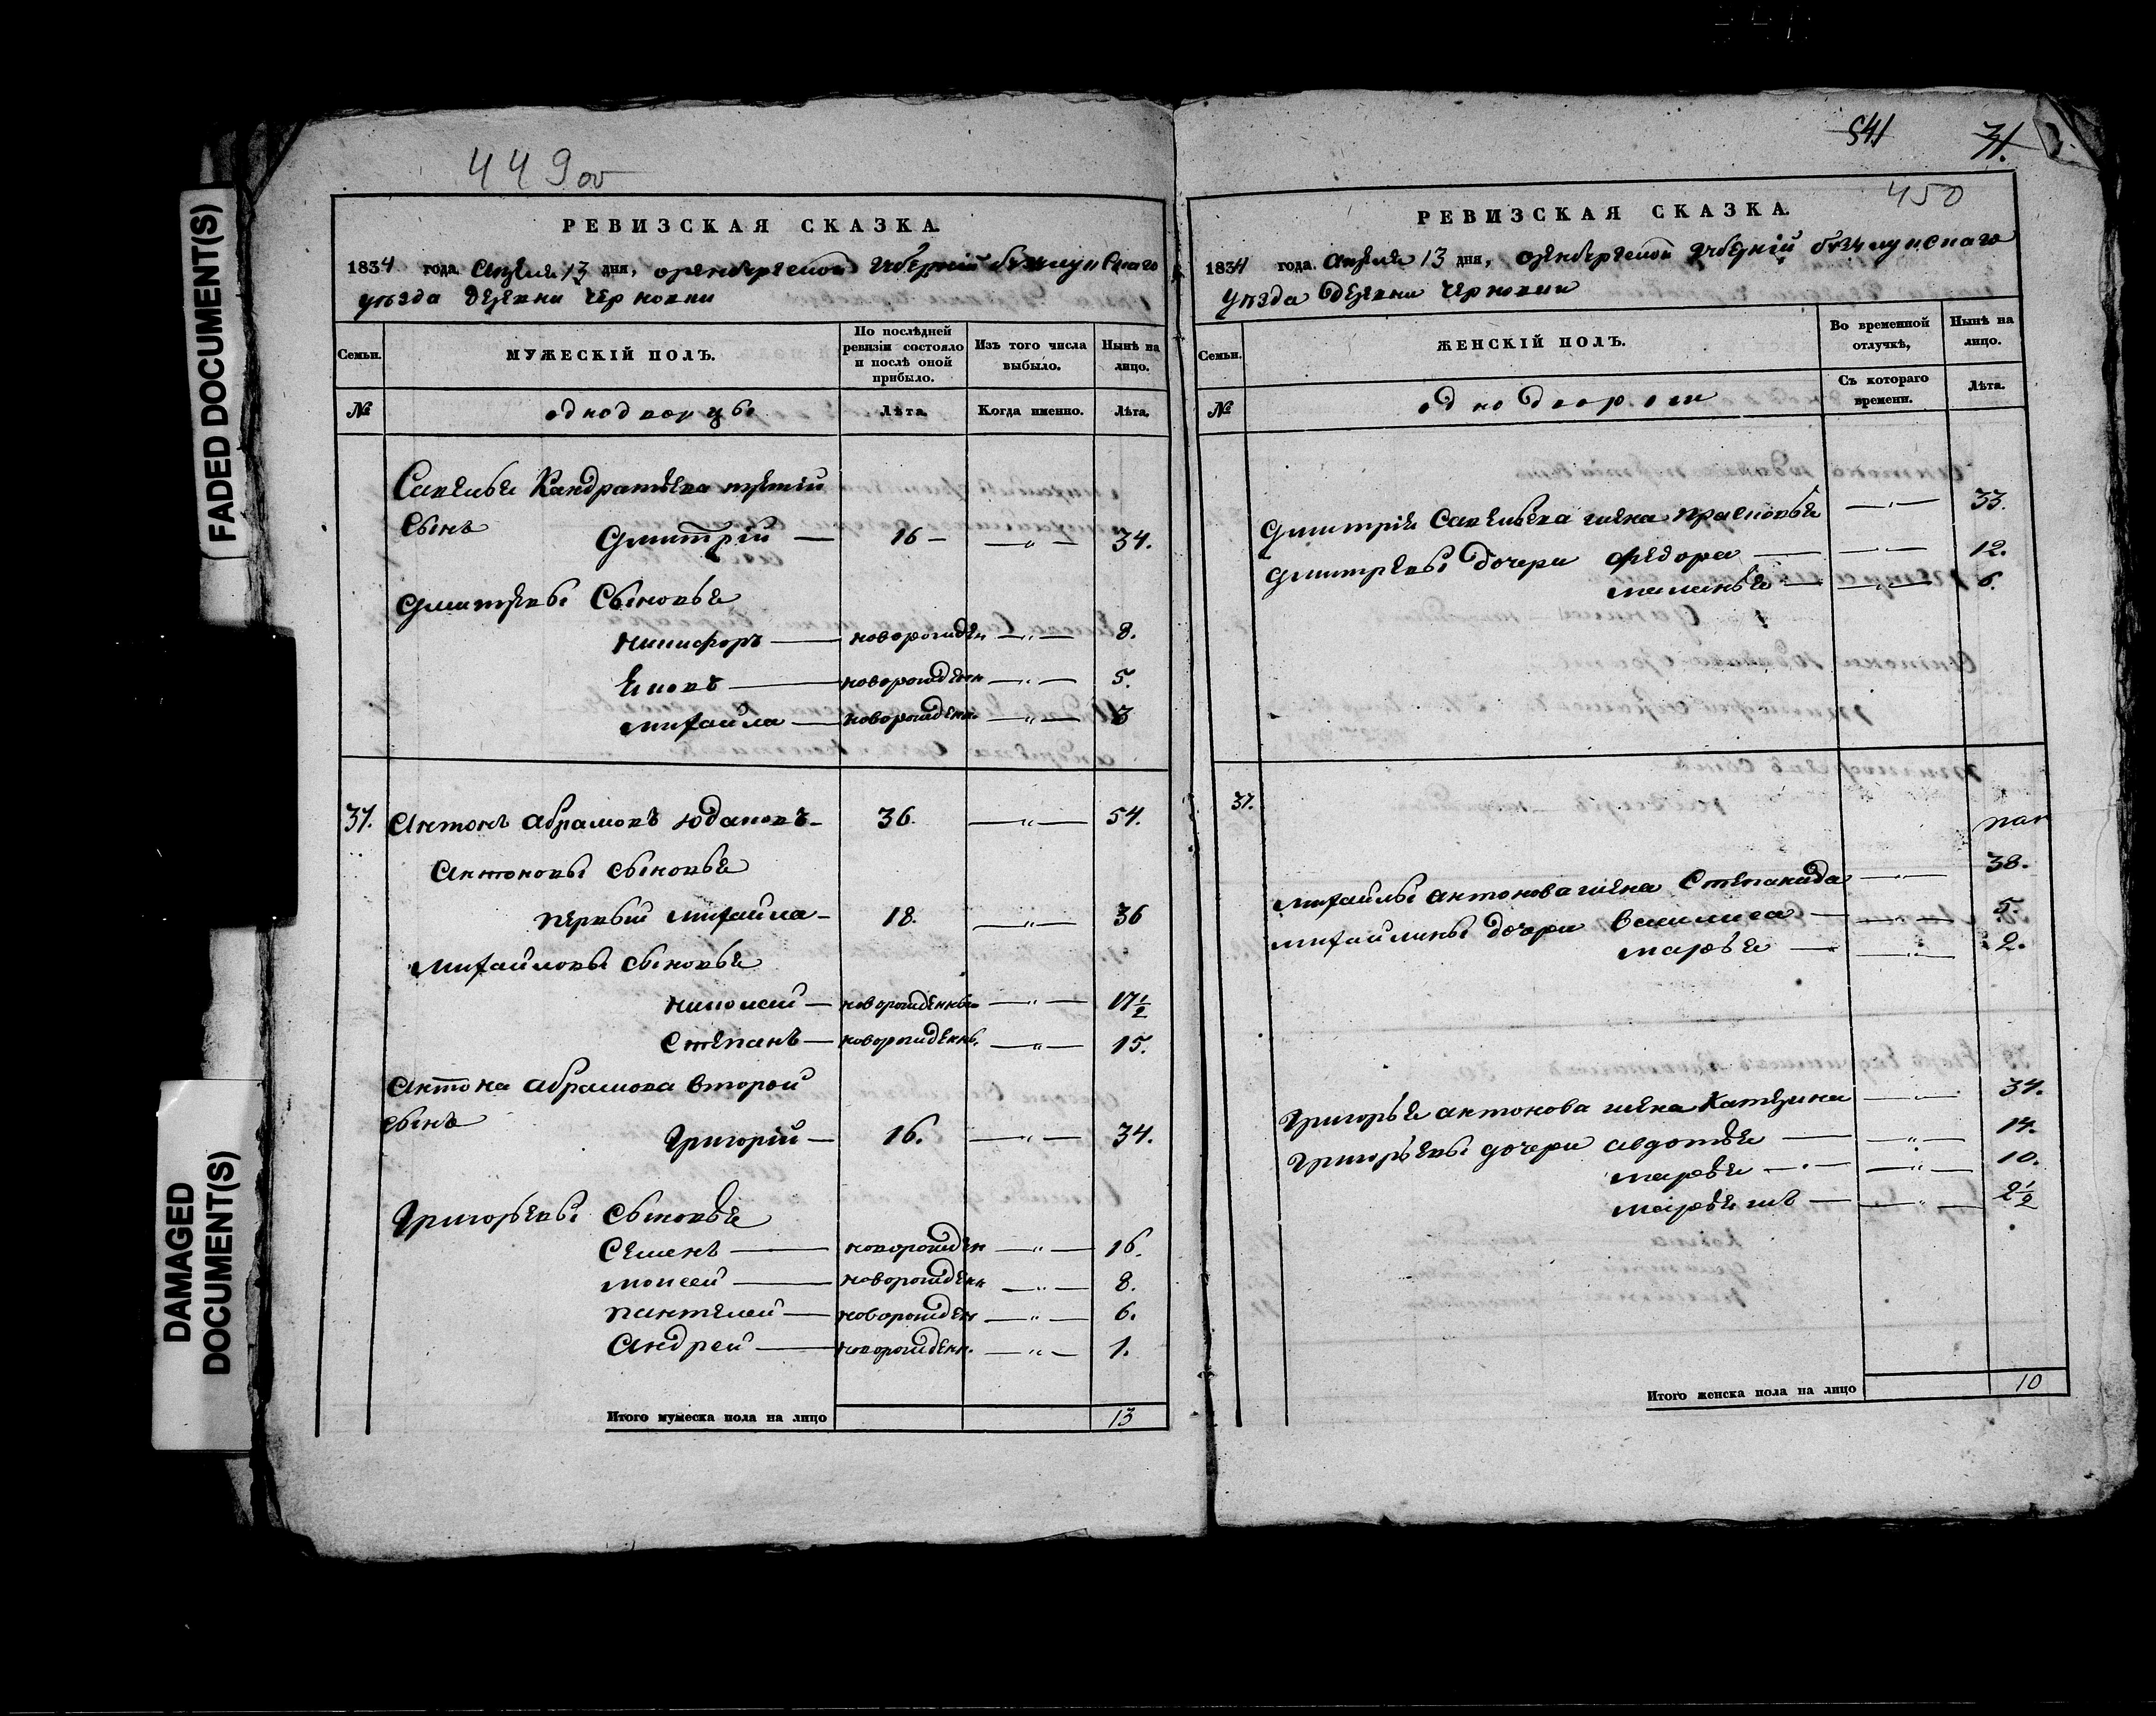 FADED DOCUMENT(S)
DAMAGED
DOCUMENT(S)
449 об
РЕВИЗСКАЯ СКАЗКА.
1834 года Апреля 13 дня, оренбургской губернiи бузулукскаго
уезда деревни Черновки
Семьи.
МУЖЕСКIЙ ПОЛЪ.
По послѣдней ревизiи состояло и послѣ оной прибыло.
Изъ того числа выбыло.
Нынѣ на лицо.
№
однодворцы
Лѣта.
Когда именно.
Лѣта.
Савелья Кандратьева третiй
сынъ Дмитрiй — 16 — — „ — 34.
Дмитревы Сыновья
Никифоръ — новорожден — „ — 8.
Еновъ — новорожденн — „ — 5.
Михайла — новорожденн. — „ — 3
37. Антонъ Абрамовъ Юдановъ — 36. — „ — 54.
Антоновы сыновья
первый Михайла — 18. — „ — 36
Михайловы сыновья
Николай — новорожденны — „ — 17 1/2
Степанъ — новорожденнъ. — „ — 15.
Антона Абрамова второй
сынъ
Григорiй — 16. — „ — 34.
Григорьевы Сыновья
Семенъ — новорожден — „ — 16.
Моисей — новорожденн — „ — 8.
Пантелей — новорожден — „ — 6.
Андрей — новорожденн. — „ — 1.
Итого мужеска пола на лицо 13
541 71.
450
РЕВИЗСКАЯ СКАЗКА.
1834 года Апреля 13 дня, оренбургской губернiй бузулукскаго
уезда деревни Черновки
Семьи.
ЖЕНСКIЙ ПОЛЪ.
Во временной отлучкѣ,
Нынѣ на лицо.
№
однодворки
Съ котораго времени.
Лѣта.
Дмитрiя Савельева жена Прасковья — „ — 33.
Дмитревы дочери Федора — „ — 12.
Маланья — „ — 6.
37.
Михайлы Антонова жена Степанида — „ — 38.
Михайлины дочери Василиса — „ — 5.
Марья — „ — 2.
Григорья Антонова жена Катерина — „ — 34.
Григорьевы дочери Авдотья — „ — 14.
Марья — „ — 10.
Марья жъ — „ — 2 1/2
Итого женска пола на лицо 10